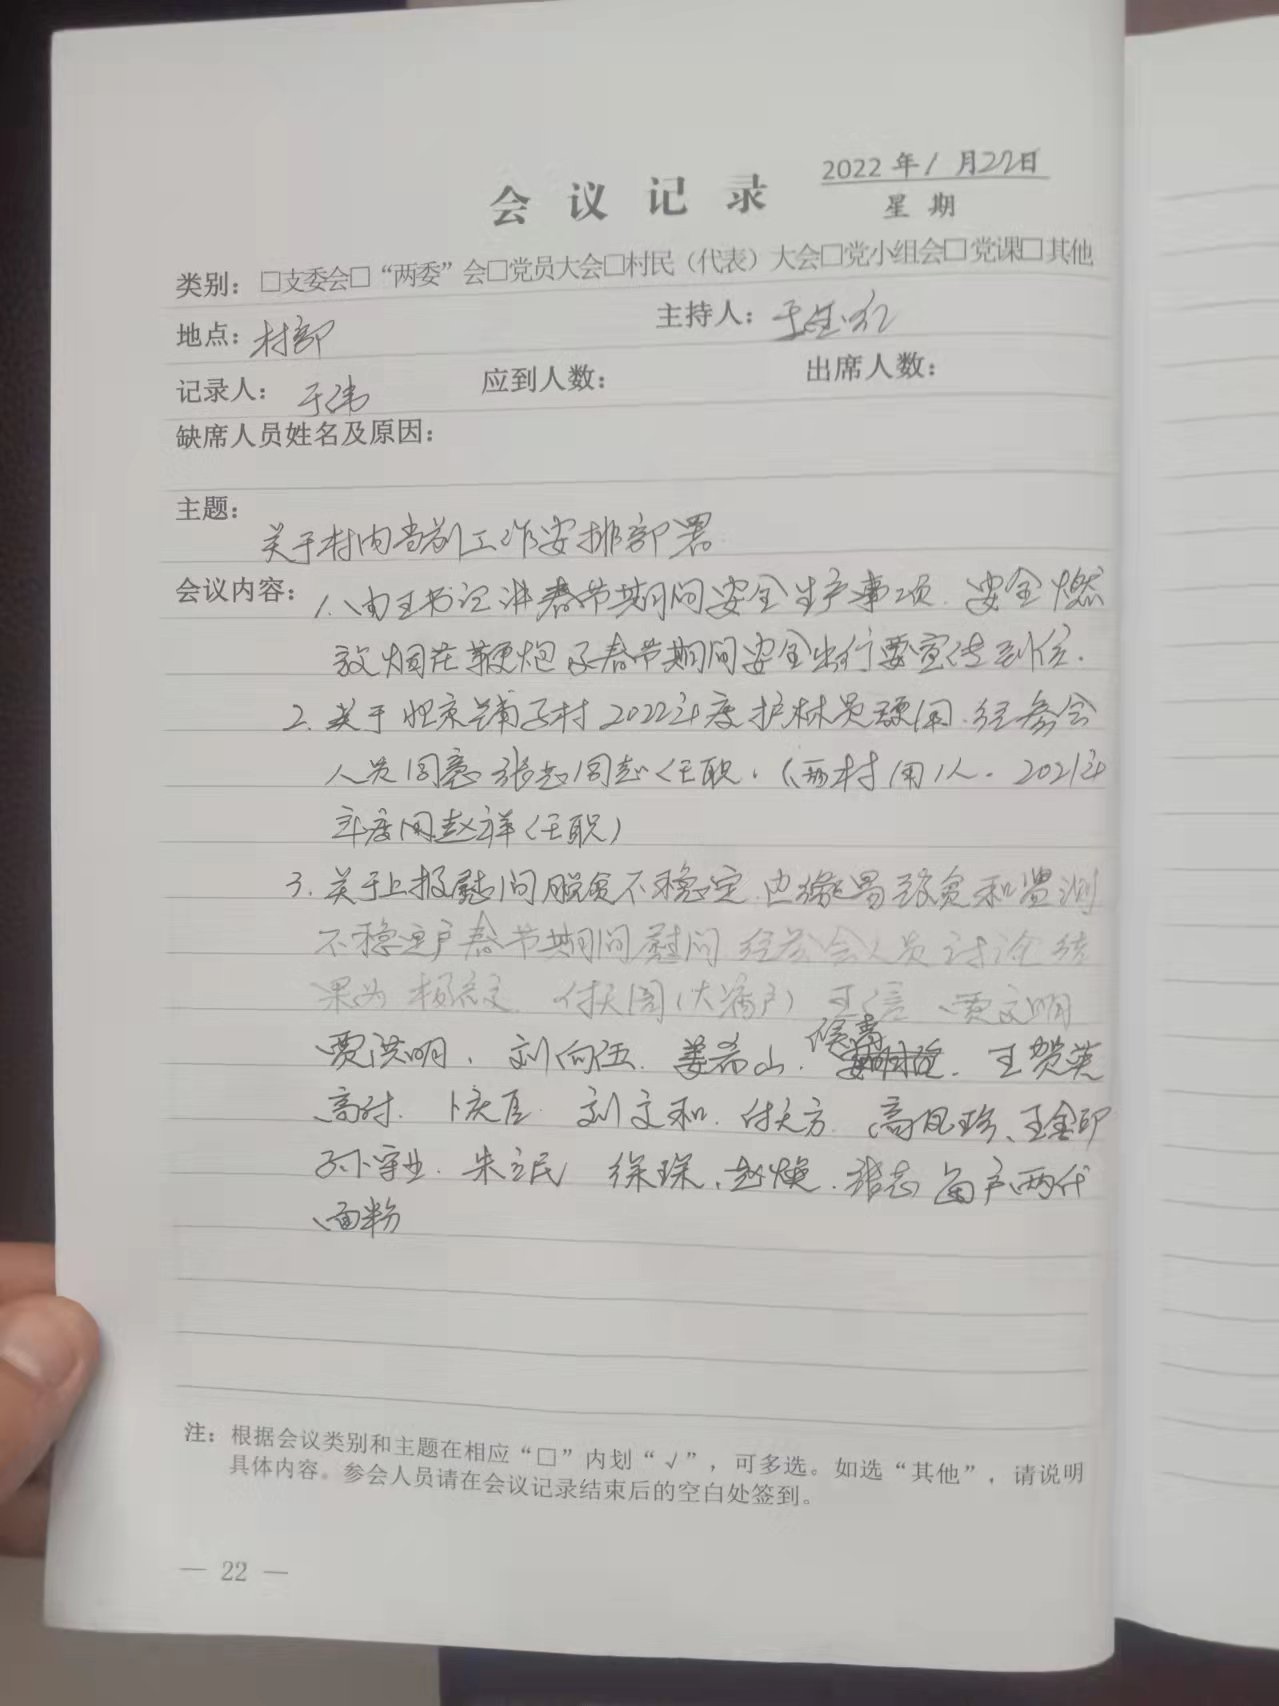 会议记录
2022 年 1 月27日
星 期
类别：□支委会□“两委”会□党员大会□村民（代表）大会□党小组会□党课□其他
地点：村部 主持人：
记录人：于伟 应到人数： 出席人数：
缺席人员姓名及原因：
主题：
关于村内当前工作安排部署
会议内容：1、由王书记讲春节期间安全生产事项. 安全燃
放烟花鞭炮及春节期间安全出行要宣传到位.
2. 关于 铺子村2022年度护林员 用. 经参会
人员同意 张志 任职.（两村用1人. 2021年
年度用赵祥任职）
3. 关于上报慰问脱贫不稳定. 边缘易致贫和监测
不稳定户春节期间慰问 经参会人员讨论结
果为 杨 文. 付天阁（大病户） 王 贾文明
贾洪明. 刘向伍. 姜希山. 侯 . 王贺英
高对. 卜庆 . 刘文和. 付天方. 高凤珍、王金印
孙守业. 朱立民 徐琛. 赵焕. 张志 每户两代
面粉
注：根据会议类别和主题在相应“□”内划“√”，可多选。如选“其他”，请说明
具体内容。参会人员请在会议记录结束后的空白处签到。
— 22 —